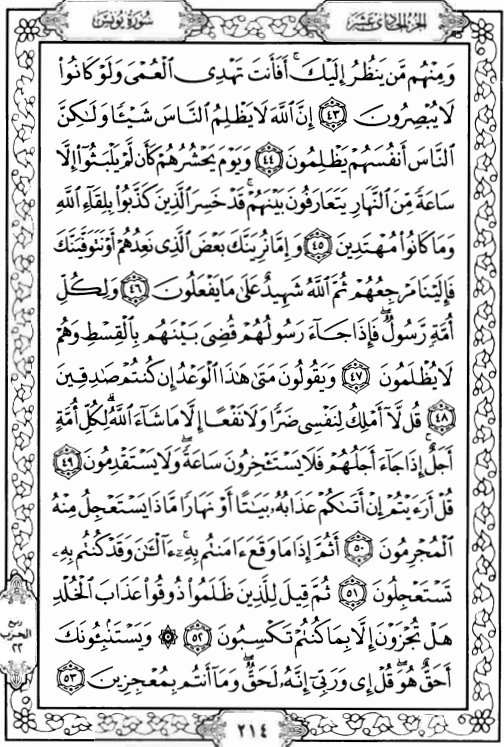 الجزء الحادي عشر
سورة يونس
وَمِنْهُم مَّن يَنظُرُ إِلَيْكَ ۚ أَفَأَنتَ تَهْدِى الْعُمْىَ وَلَوْ كَانُوا۟
لَا يُبْصِرُونَ ٤٣ إِنَّ اللَّهَ لَا يَظْلِمُ النَّاسَ شَيْـًٔا وَلَٰكِنَّ
النَّاسَ أَنفُسَهُمْ يَظْلِمُونَ ٤٤ وَيَوْمَ يَحْشُرُهُمْ كَأَن لَّمْ يَلْبَثُوٓا۟ إِلَّا
سَاعَةً مِّنَ النَّهَارِ يَتَعَارَفُونَ بَيْنَهُمْ ۚ قَدْ خَسِرَ الَّذِينَ كَذَّبُوا۟ بِلِقَآءِ اللَّهِ
وَمَا كَانُوا۟ مُهْتَدِينَ ٤٥ وَإِمَّا نُرِيَنَّكَ بَعْضَ الَّذِى نَعِدُهُمْ أَوْ نَتَوَفَّيَنَّكَ
فَإِلَيْنَا مَرْجِعُهُمْ ثُمَّ اللَّهُ شَهِيدٌ عَلَىٰ مَا يَفْعَلُونَ ٤٦ وَلِكُلِّ
أُمَّةٍ رَّسُولٌ ۖ فَإِذَا جَآءَ رَسُولُهُمْ قُضِىَ بَيْنَهُم بِالْقِسْطِ وَهُمْ
لَا يُظْلَمُونَ ٤٧ وَيَقُولُونَ مَتَىٰ هَٰذَا الْوَعْدُ إِن كُنتُمْ صَٰدِقِينَ
٤٨ قُل لَّآ أَمْلِكُ لِنَفْسِى ضَرًّا وَلَا نَفْعًا إِلَّا مَا شَآءَ اللَّهُ ۗ لِكُلِّ أُمَّةٍ
أَجَلٌ ۚ إِذَا جَآءَ أَجَلُهُمْ فَلَا يَسْتَـْٔخِرُونَ سَاعَةً ۖ وَلَا يَسْتَقْدِمُونَ ٤٩
قُلْ أَرَءَيْتُمْ إِنْ أَتَىٰكُمْ عَذَابُهُۥ بَيَٰتًا أَوْ نَهَارًا مَّاذَا يَسْتَعْجِلُ مِنْهُ
الْمُجْرِمُونَ ٥٠ أَثُمَّ إِذَا مَا وَقَعَ ءَامَنتُم بِهِۦٓ ۚ ءَآلْـَٰٔنَ وَقَدْ كُنتُم بِهِۦ
تَسْتَعْجِلُونَ ٥١ ثُمَّ قِيلَ لِلَّذِينَ ظَلَمُوا۟ ذُوقُوا۟ عَذَابَ الْخُلْدِ
هَلْ تُجْزَوْنَ إِلَّا بِمَا كُنتُمْ تَكْسِبُونَ ٥٢ ۞ وَيَسْتَنۢبِـُٔونَكَ
أَحَقٌّ هُوَ ۖ قُلْ إِى وَرَبِّىٓ إِنَّهُۥ لَحَقٌّ ۖ وَمَآ أَنتُم بِمُعْجِزِينَ ٥٣
ربع
الحزب
٢٢
٢١٤